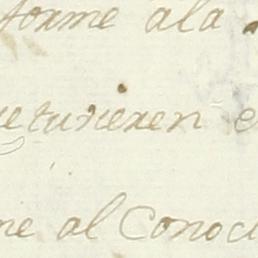 forme ala
uetuvieren e
me al Conoci